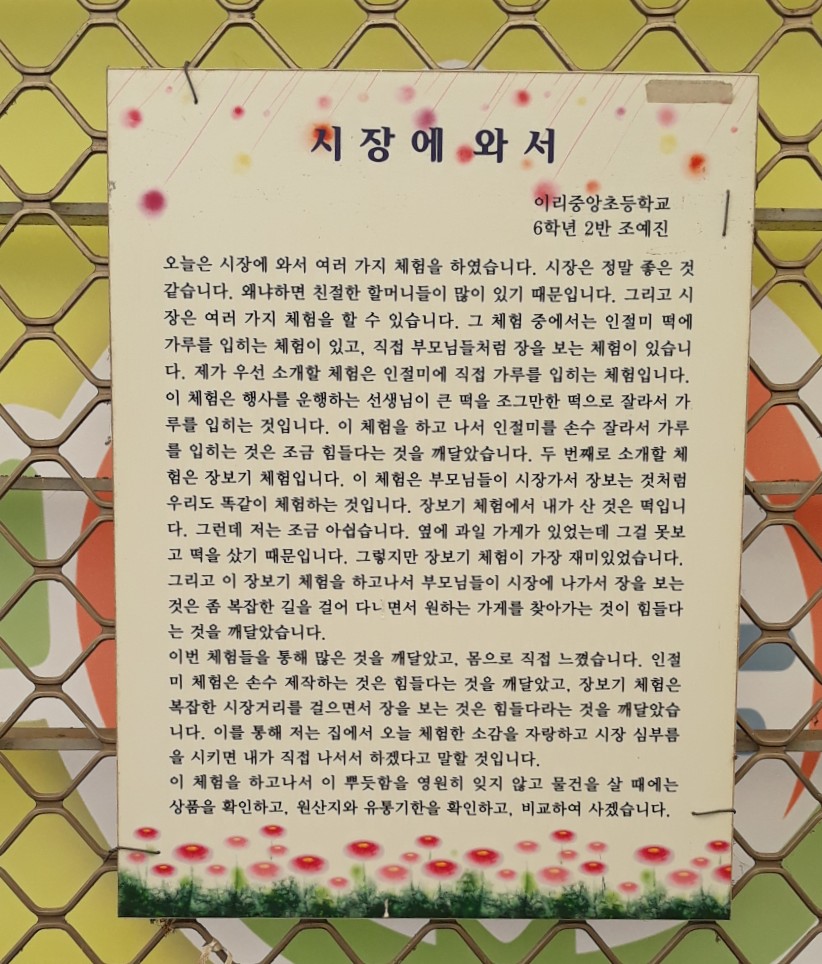 시장에 와서
이리중앙초등학교
6학년 2반 조예진
오늘은 시장에 와서 여러 가지 체험을 하였습니다. 시장은 정말 좋은 것
같습니다. 왜냐하면 친절한 할머니들이 많이 있기 때문입니다. 그리고 시
장은 여러 가지 체험을 할 수 있습니다. 그 체험 중에서는 인절미 떡에
가루를 입히는 체험이 있고, 직접 부모님들처럼 장을 보는 체험이 있습니
다. 제가 우선 소개할 체험은 인절미에 직접 가루를 입히는 체험입니다.
이 체험은 행사를 운행하는 선생님이 큰 떡을 조그만한 떡으로 잘라서 가
루를 입히는 것입니다. 이 체험을 하고 나서 인절미를 손수 잘라서 가루
를 입히는 것은 조금 힘들다는 것을 깨달았습니다. 두 번째로 소개할 체
험은 장보기 체험입니다. 이 체험은 부모님들이 시장가서 장보는 것처럼
우리도 똑같이 체험하는 것입니다. 장보기 체험에서 내가 산 것은 떡입니
다. 그런데 저는 조금 아쉽습니다. 옆에 과일 가게가 있었는데 그걸 못보
고 떡을 샀기 때문입니다. 그렇지만 장보기 체험이 가장 재미있었습니다.
그리고 이 장보기 체험을 하고나서 부모님들이 시장에 나가서 장을 보는
것은 좀 복잡한 길을 걸어 다니면서 원하는 가게를 찾아가는 것이 힘들다
는 것을 깨달았습니다.
이번 체험들을 통해 많은 것을 깨달았고, 몸으로 직접 느꼈습니다. 인절
미 체험은 손수 제작하는 것은 힘들다는 것을 깨달았고, 장보기 체험은
복잡한 시장거리를 걸으면서 장을 보는 것은 힘들다라는 것을 깨달았습
니다. 이를 통해 저는 집에서 오늘 체험한 소감을 자랑하고 시장 심부름
을 시키면 내가 직접 나서서 하겠다고 말할 것입니다.
이 체험을 하고나서 이 뿌듯함을 영원히 잊지 않고 물건을 살 때에는
상품을 확인하고, 원산지와 유통기한을 확인하고, 비교하여 사겠습니다.